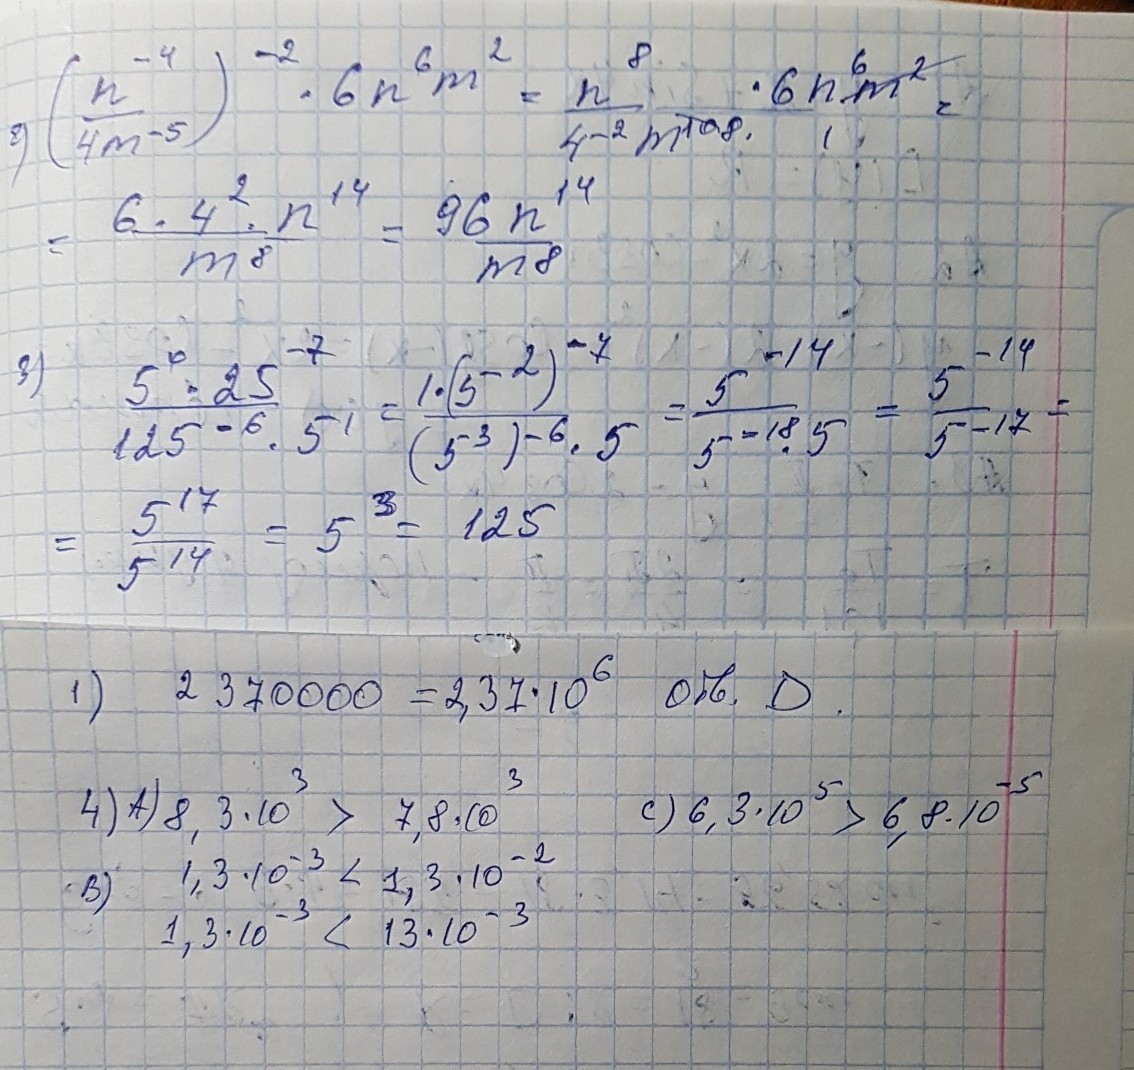 2) (n⁻⁴/4m⁻⁵)⁻² · 6n⁶m² = n⁸/4⁻²m¹⁰ 8. · 6n⁶m²/1 =
= 6 · 4² · n¹⁴/m⁸ = 96n¹⁴/m⁸
3) 5⁰ · 25⁻⁷/125⁻⁶ · 5¹ = 1·(5⁻²)⁻⁷/(5³)⁻⁶ · 5 = 5⁻¹⁴/5⁻¹⁸ · 5 = 5⁻¹⁴/5⁻¹⁷ =
= 5¹⁷/5¹⁴ = 5³ = 125
1) 2370000 = 2,37·10⁶ отв. D.
4) A) 8,3·10³ > 7,8·10³ C) 6,3·10⁵ > 6,8·10⁻⁵
B) 1,3·10⁻³ < 1,3·10⁻²
1,3·10⁻³ < 13·10⁻³